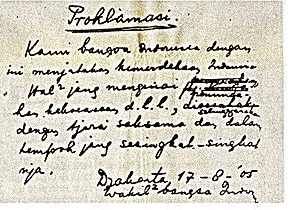 Proklamasi.
Kami bangsa Indonesia dengan
ini menjatakan kemerdekaan Indonesia
Hal² jang mengenai
kekoeasaan d.l.l.,
dengan tjara saksama dan dalam
tempoh jang sesingkat-singkat
nja.
Djakarta 17-8-'05
Wakil² bangsa Indon.